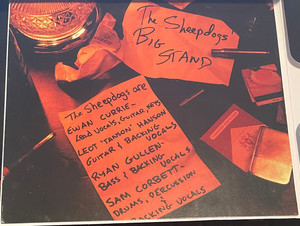 The Sheepdogs
BIG
STAND
The Sheepdogs are
EWAN CURRIE-
Lead vocals, Guitar, keys
LEOT 'TANSON' HANSON
GUITAR & BACKING
VOCALS
RYAN GULLEN-
BASS & BACKING VOCALS
SAM CORBETT-
DRUMS, PERCUSSION
&
BACKING VOCALS